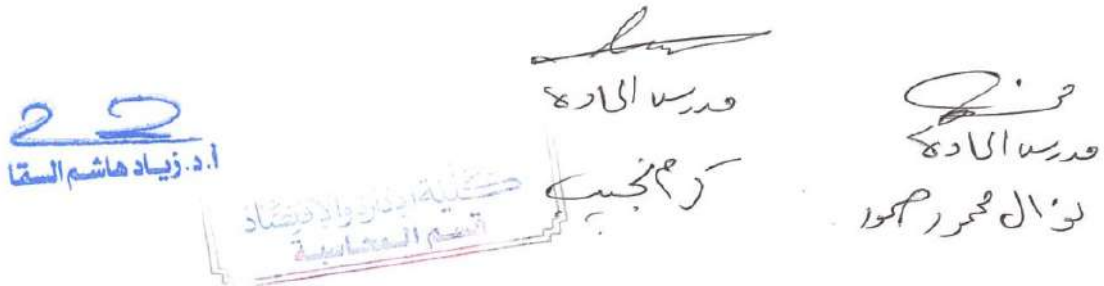 مدرس المادة
نوال محمود
مدرس المادة
كرم نجيب
أ.د. زياد هاشم السقا
كلية الإدارة والاقتصاد
قسم المحاسبة